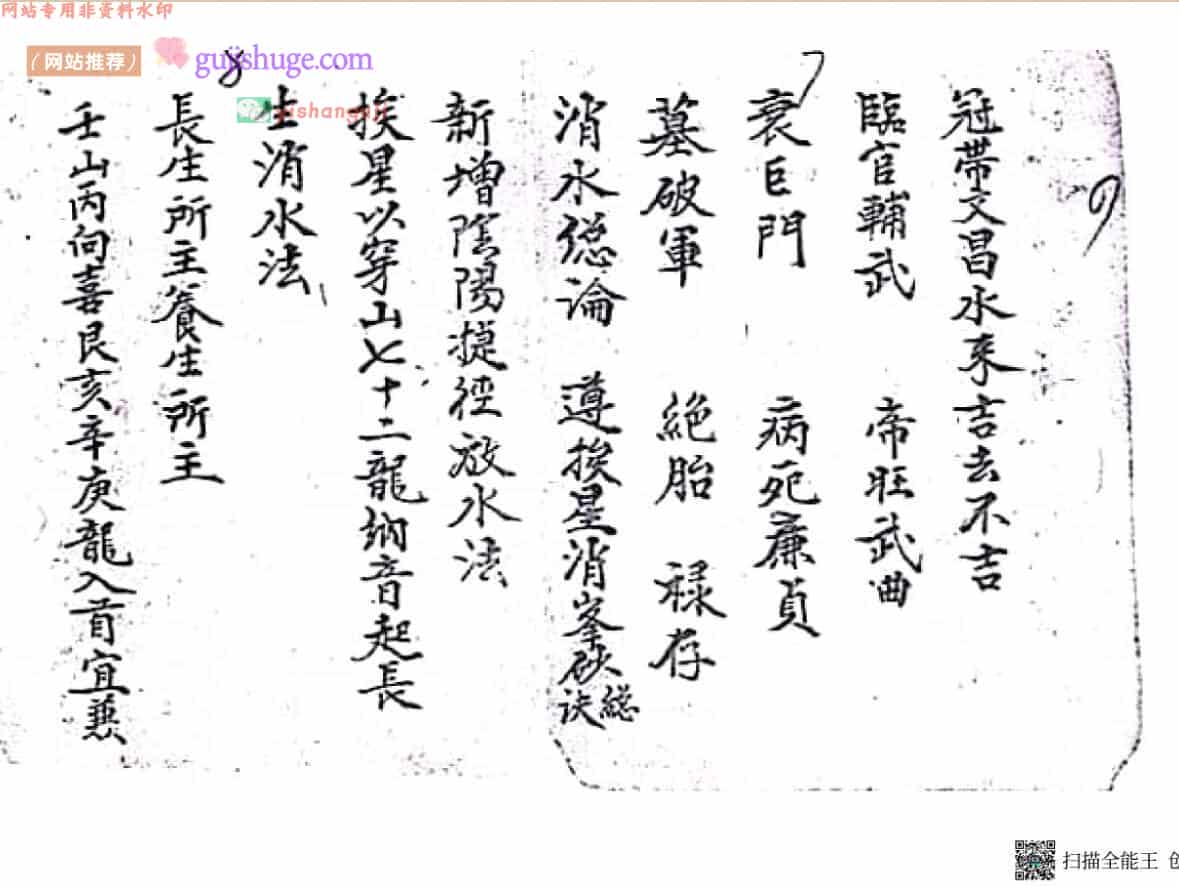 网站专用非资料水印
（网站推荐）
gujishuge.com
冠帶文昌水来吉去不吉
臨官輔武 帝旺武曲
衰巨門 病死廉貞
墓破軍 絶胎 禄存
消水總論 遵挨星消峯砍總诀
新增陰陽捷徑放水法
挨星以穿山七十二龍纳音起長
生消水法
長生所主養生所主
壬山丙向喜艮亥辛庚龍入首宜兼
7
8
9
扫描全能王 创